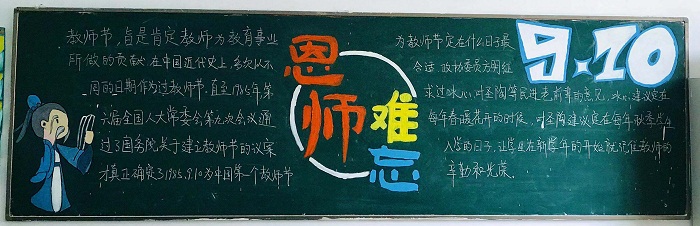 教师节，旨是肯定教师为教育事业
所做的贡献 在中国近代史上，多次从不
同的日期作为过教师节，直至1985年第
六届全国人大常委会第九次会议通
过了国务院关于建立教师节的议案
才真正确定了1985.9.10为中国第一个教师节
恩师难忘
9.10
为教师节定在什么日子最
合适，政协委员方明征
求过冰心、叶圣陶等民进老前辈的意见，冰心建议定在
每年春暖花开的时候，叶圣陶建议定在每年秋季
入学的日子，让学生在新学年的开始就记住教师的
辛勤和光荣。